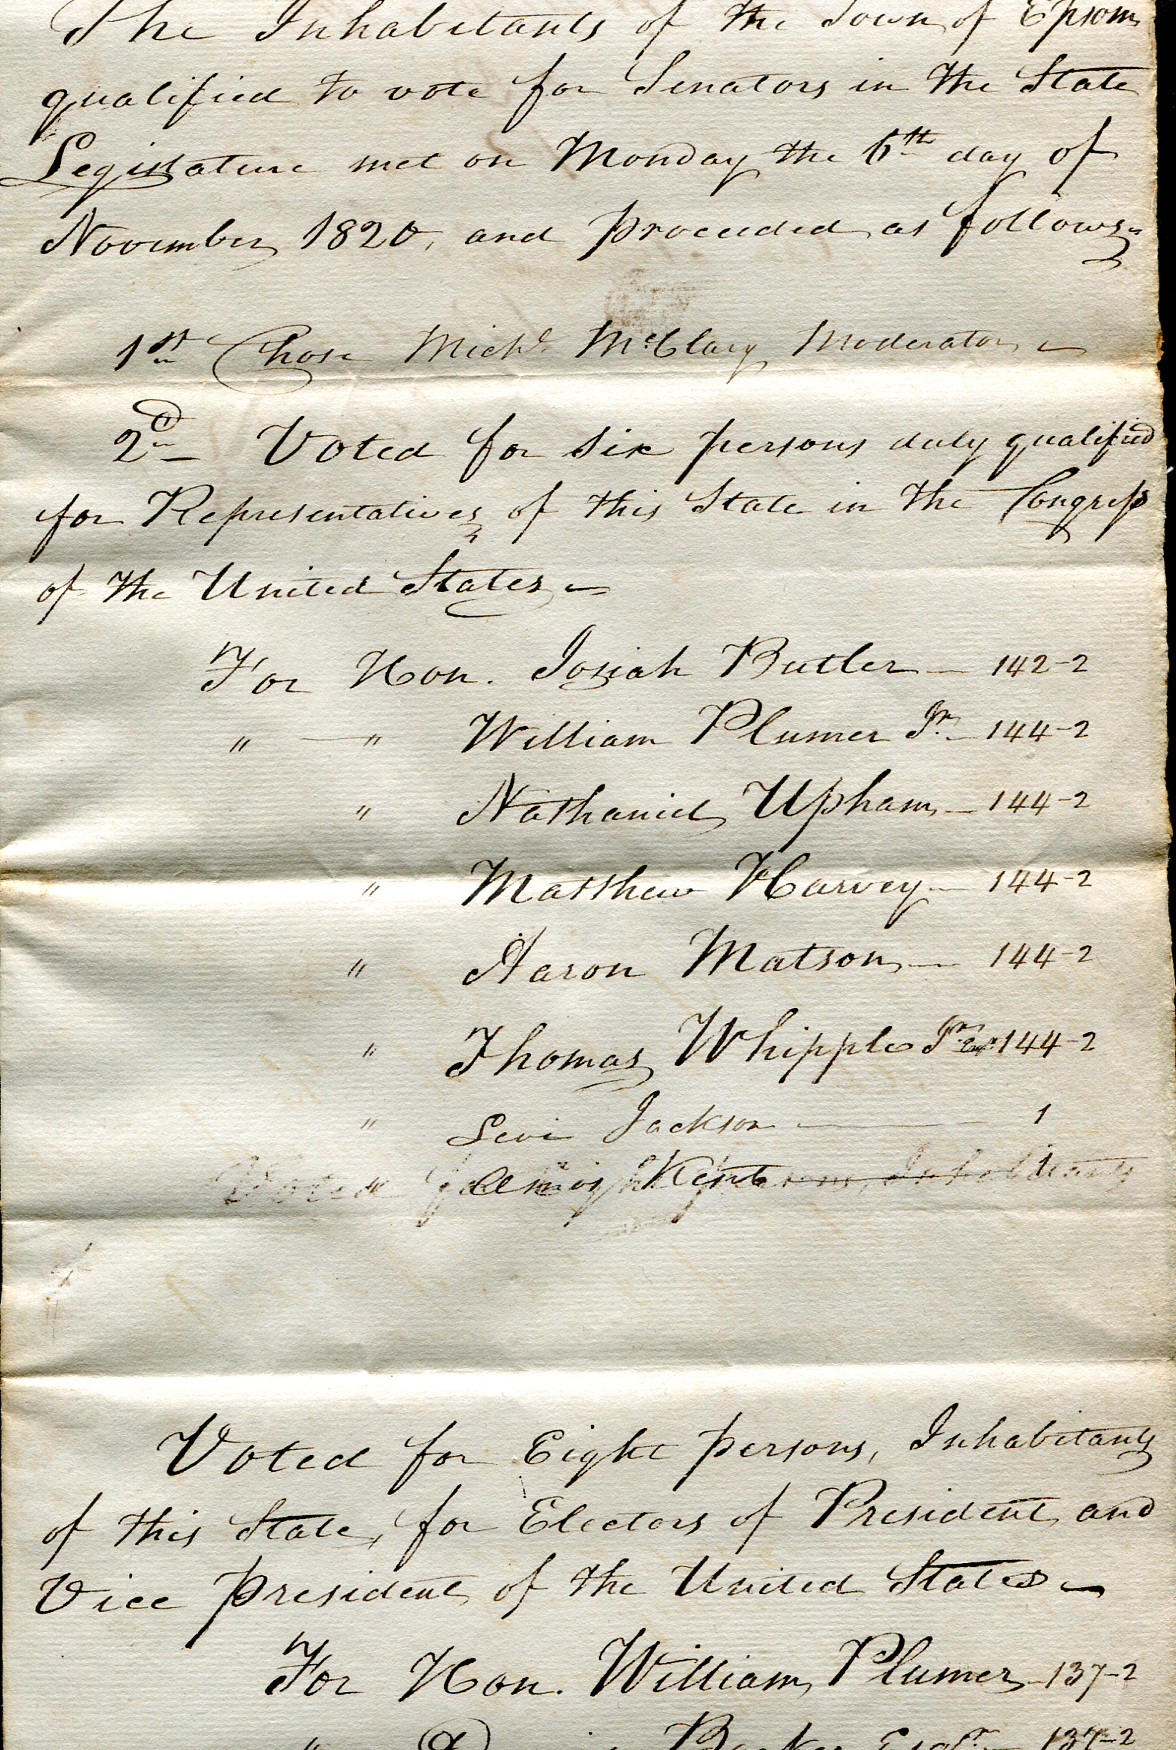 The Inhabitants of the Town of Epsom
qualified to vote for Senators in the State
Legislature met on Monday the 6th day of
November 1820, and proceeded as follows,
1st Chose Michl. McClary Moderator
2d Voted for six persons duly qualified
for Representatives of this State in the Congress
of the United States
For Hon. Josiah Butler 142-2
" " William Plumer Jr. 144-2
" Nathaniel Upham 144-2
" Matthew Harvey 144-2
" Aaron Matson 144-2
" Thomas Whipple Jr. 144-2
" Levi Jackson 1
Voted Amos Kent Inhabitants 1
Voted for Eight persons, Inhabitants
of this State, for Electors of President and
Vice President of the United States
For Hon. William Plumer 137-2
" Barker Esqr. 137-2